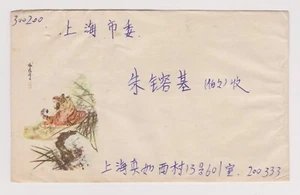 300200
上海市委
朱镕基(收)收
上海真如西村13号601室. 200333